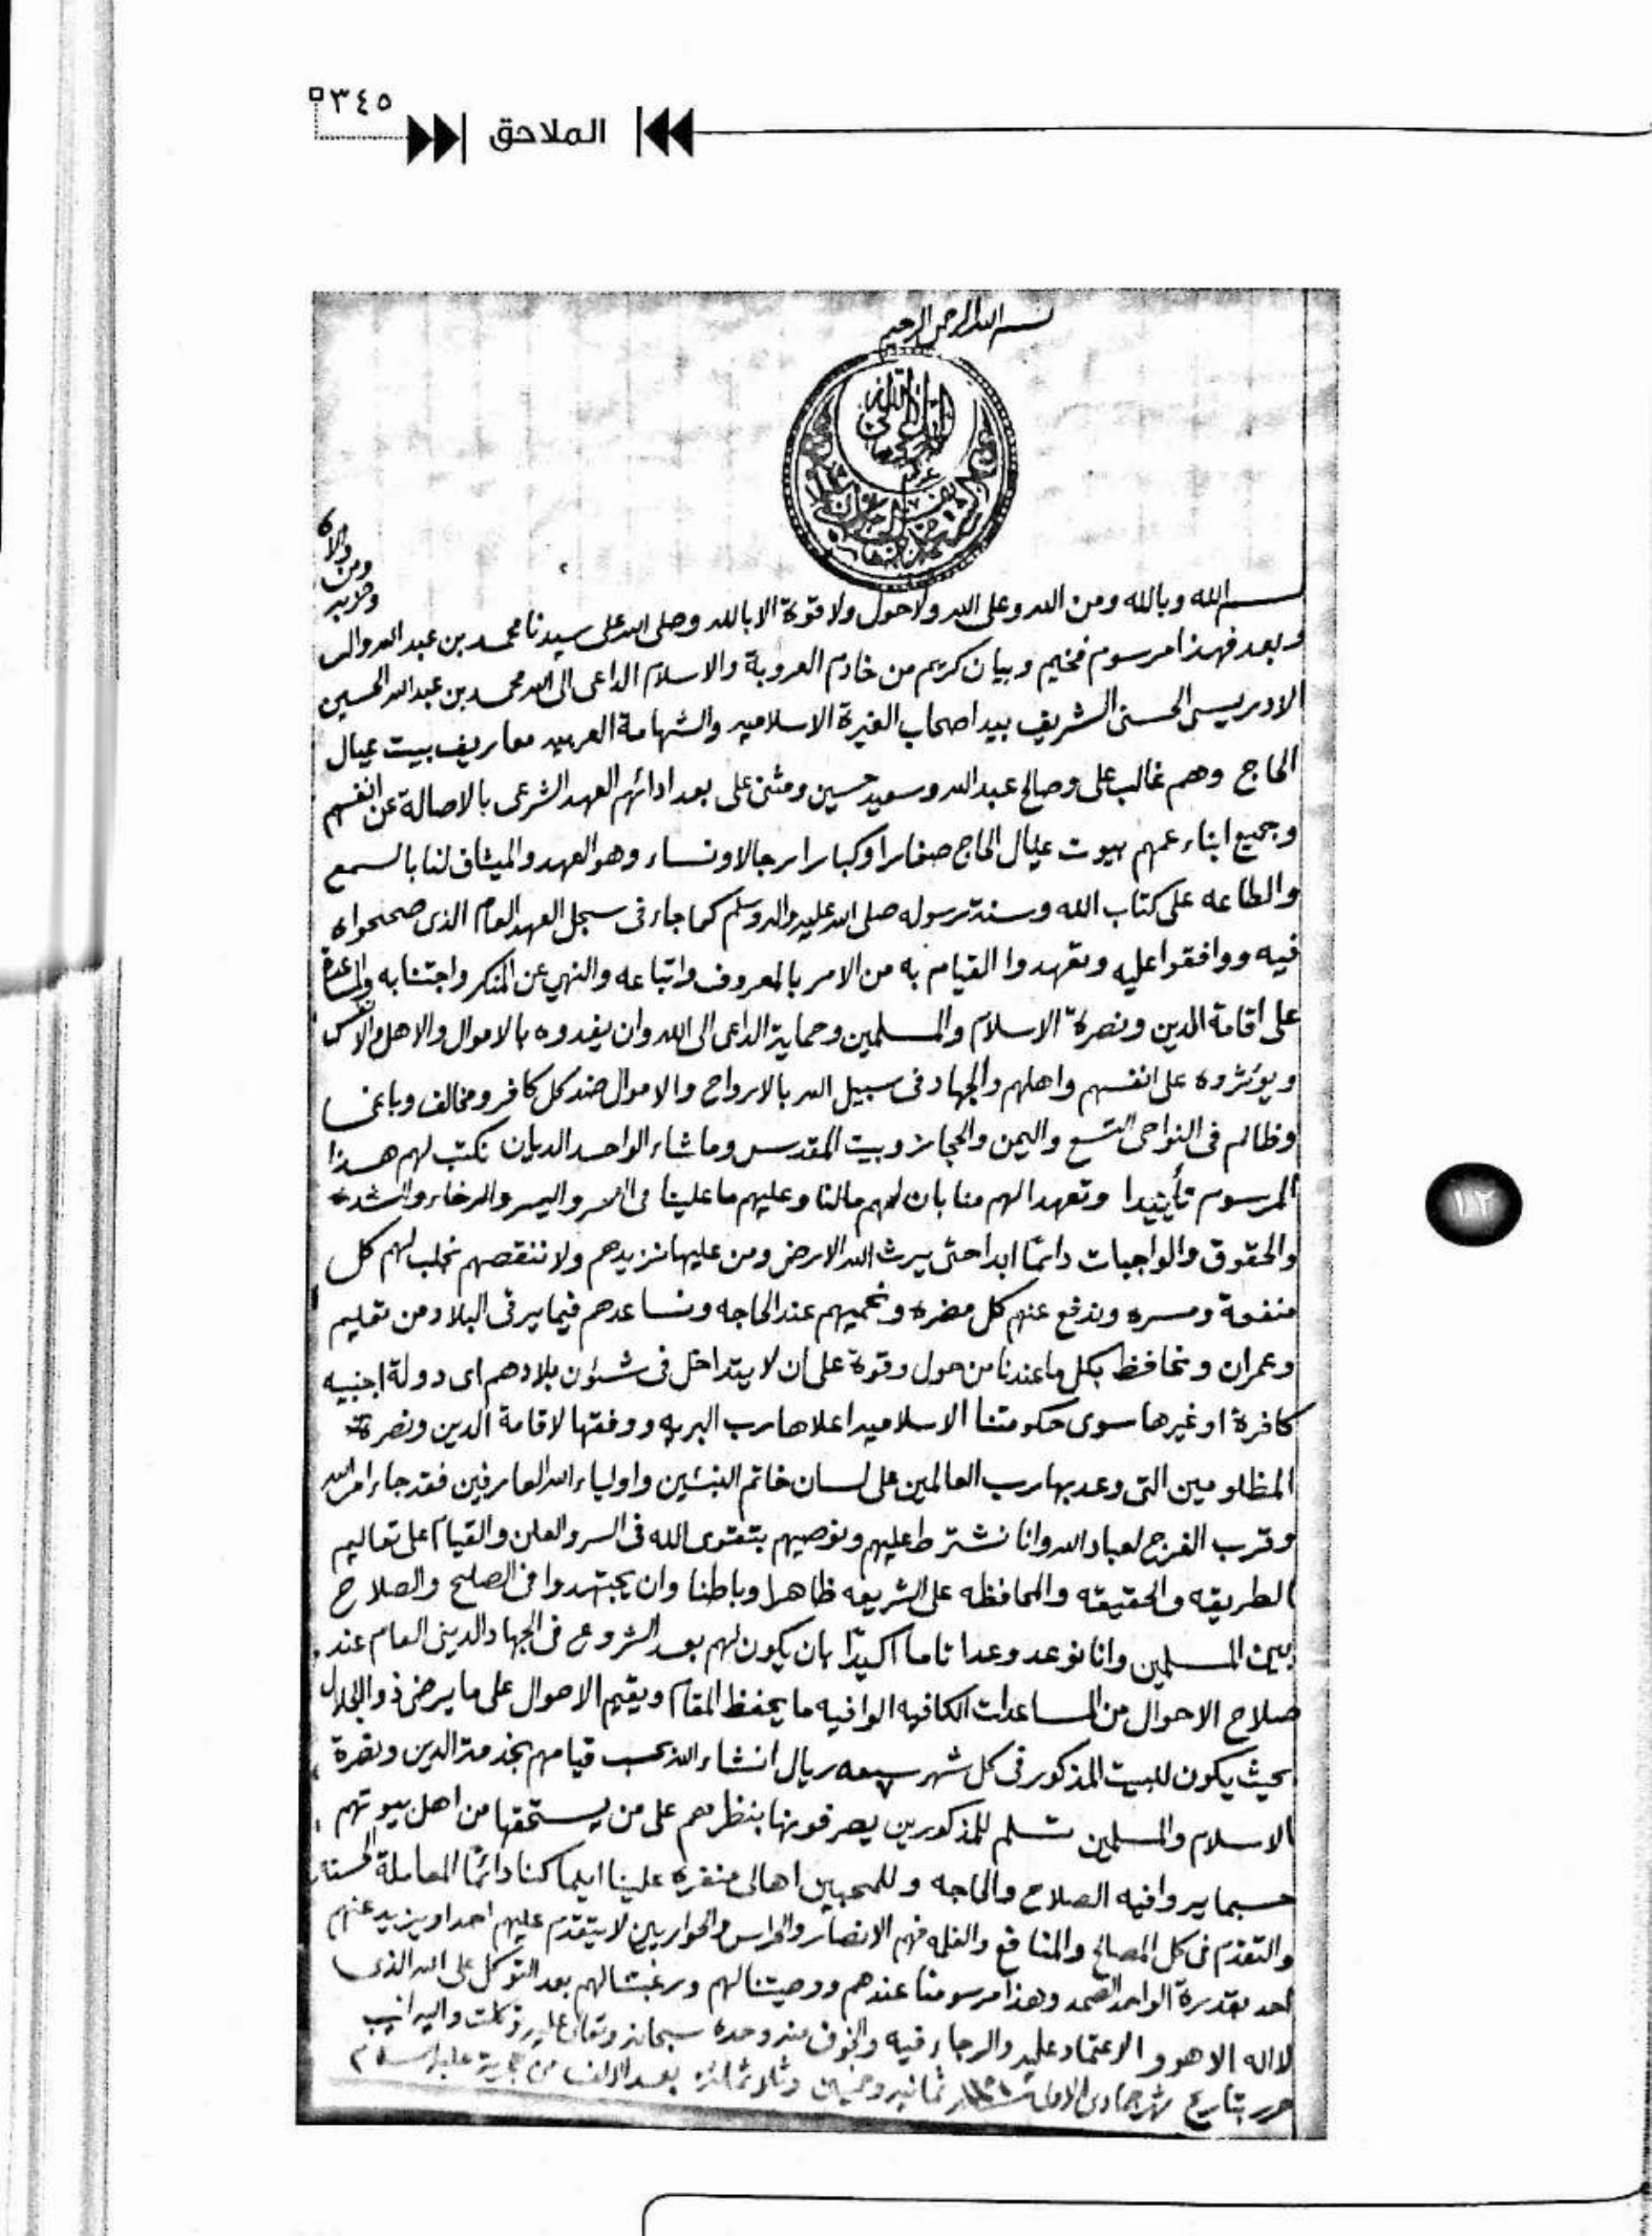 ٣٤٥
الملاحق
بسم الله الرحمن الرحيم
وحزبه
ومن
والاه
بسم الله وبالله ومن الله وعلى الله ولاحول ولا قوة الا بالله وصلى الله على سيدنا محمد بن عبد الله واله
وبعد فهذا مرسوم فخيم وبيان كريم من خادم العروبة والاسلام الداعي الى الله محمد بن عبد الله الحسين
الادريسى الحسنى الشريف بيد اصحاب الغيرة الاسلاميه والشهامة العربيه معاريف بيت عيال
الحاج وهم غالب على وصالح عبد الله وسعيد حسين ومثنى على بعد ادائهم العهد الشرعى بالاصالة عن انفسهم
وجميع ابناء عمهم بيوت عيال الحاج صغارا وكبارا رجالا ونساء وهو العهد والميثاق لنا بالسمع
والطاعه على كتاب الله وسنة رسوله صلى الله عليه واله وسلم كما جاء فى سجل العهد العام الذى صححوا
فيه ووافقوا عليه وتعهدوا القيام به من الامر بالمعروف واتباعه والنهي عن المنكر واجتنابه والمساعدة
على اقامة الدين ونصرة الاسلام والمسلمين وحماية الداعى الى الله وان يفدوه بالاموال والاهل والانفس
ويؤثروه على انفسهم واهلهم والجهاد فى سبيل الله بالارواح والاموال ضد كل كافر ومخالف وباغى
وظالم فى النواحى التسع واليمن والحجاز وبيت المقدس وما شاء الواحد الديان نكتب لهم هذا
المرسوم تأييدا وتعهدا لهم منا بان لهم مالنا وعليهم ما علينا فى العسر واليسر والرخاء والشده
والحقوق والواجبات دائما ابدا حتى يرث الله الارض ومن عليها نزيدهم ولا ننقصهم نجلب لهم كل
منفعة ومسره وندفع عنهم كل مضره ونحميهم عند الحاجه ونساعدهم فيما يرقى البلاد من تعليم
وعمران ونحافظ بكل ما عندنا من حول وقوة على ان لا يتداخل فى شئون بلادهم اى دولة اجنبيه
كافرة او غيرها سوى حكومتنا الاسلاميه اعلاها رب البريه ووفقها لاقامة الدين ونصرة
المظلومين التى وعد بها رب العالمين على لسان خاتم النبئين واولياء الله العارفين فقد جاء امر الله
وقرب الفرج لعباد الله وانا نشترط عليهم ونوصيهم بتقوى الله فى السر والعلن والقيام على تعاليم
الطريقه والحقيقه والمحافظه على الشريعه ظاهرا وباطنا وان يجتهدوا فى الصلح والصلاح
بين المسلمين وانا نوعد وعدا تاما اكيدا بان يكون لهم بعد الشروع فى الجهاد الدينى العام عند
صلاح الاحوال من المساعدات الكافيه الوافيه ما يحفظ المقام ويقيم الاحوال على ما يرضى ذو الجلال
بحيث يكون للبيت المذكور فى كل شهر ريال انشاء الله بحسب قيامهم بخدمة الدين ونصرة
الاسلام والمسلمين تسلم للمذكورين يصرفونها بنظرهم على من يستحقها من اهل بيوتهم
حسبما يروا فيه الصلاح والحاجه وللمحبين اهالى علينا ايما كنا دائما المعاملة الحسنه
والتقدم فى كل المصالح والمنافع فهم الانصار والحراس والحواريين لا يتقدم عليهم احد او يزيد عنهم
احد بقدرة الواحد الصمد وهذا مرسومنا عندهم ووصيتنا لهم ورغبتنا لهم بعد التوكل على الله الذى
لا اله الا هو والاعتماد عليه والرجاء فيه والخوف منه وحده سبحانه وتعالى عليه توكلت واليه انيب
حرر بتاريخ شهر جمادى الاول ثمانيه وخمسين وثلاثمائه بعد الالف من هجرية عليه السلام
١١٢